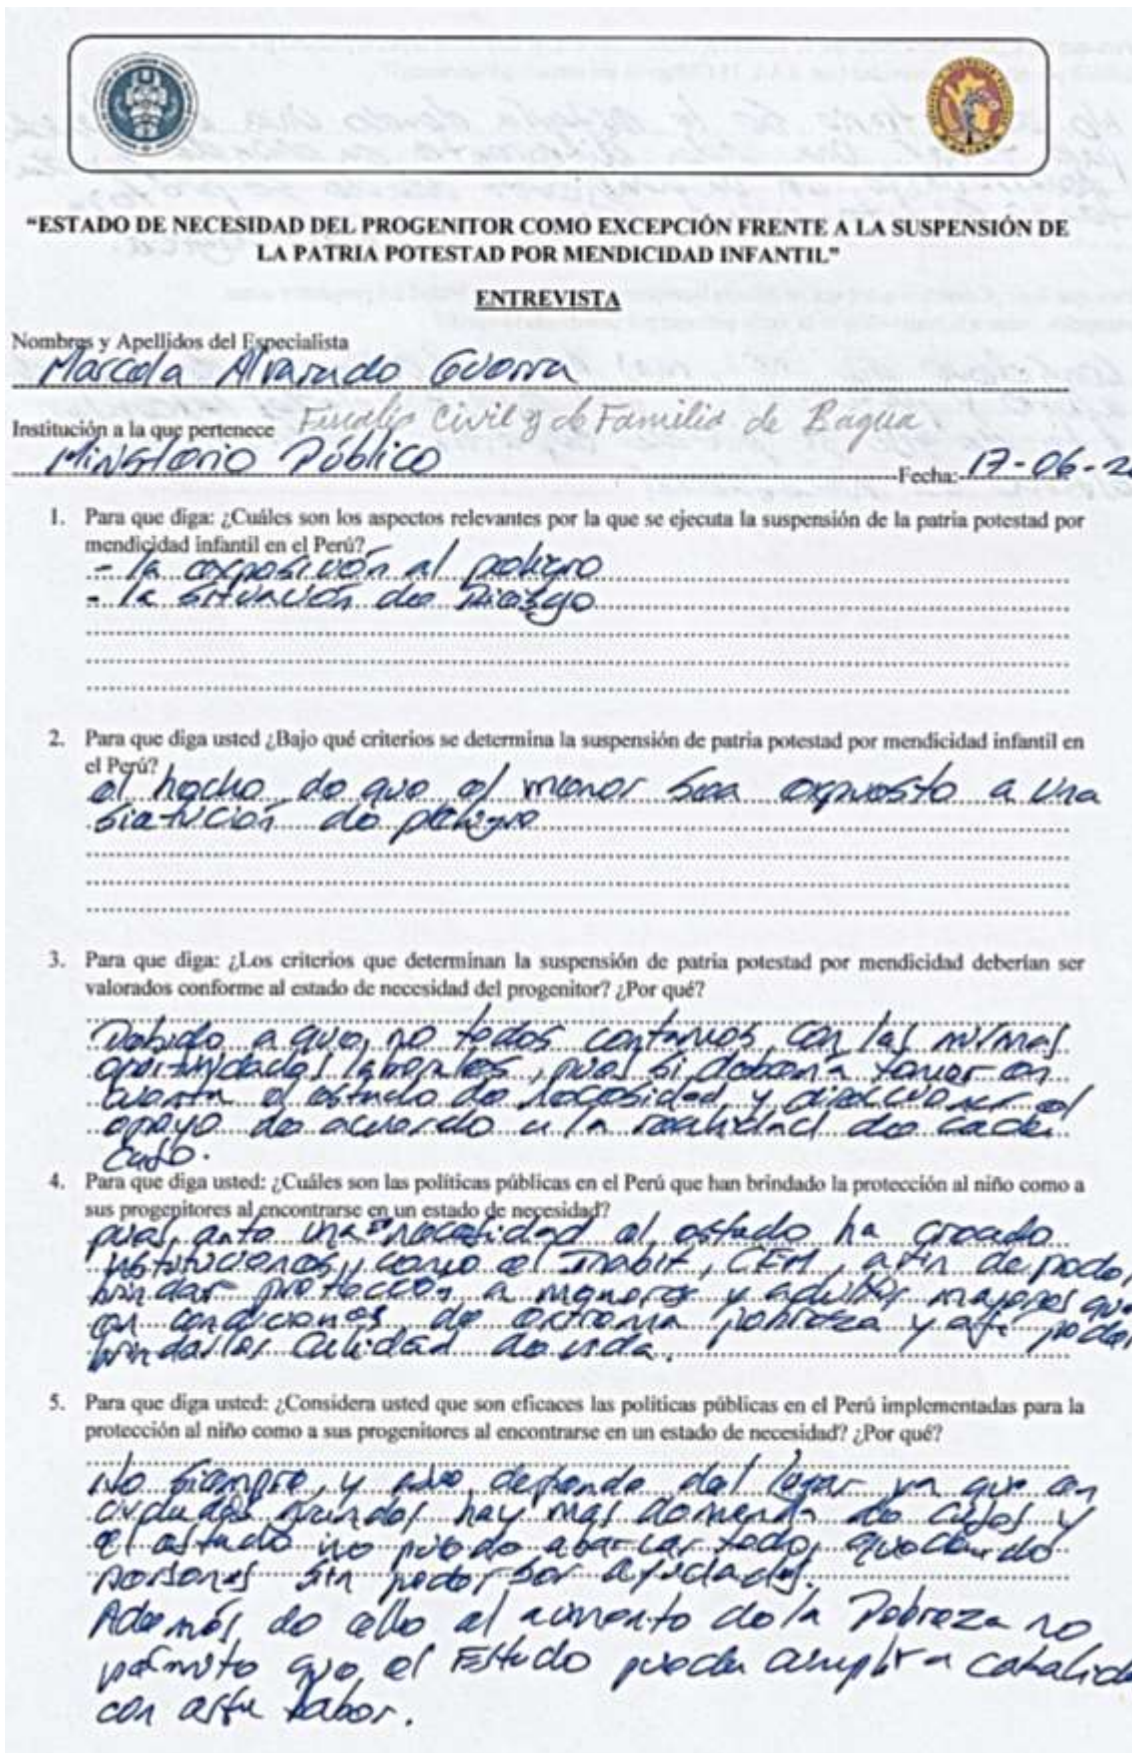 "ESTADO DE NECESIDAD DEL PROGENITOR COMO EXCEPCIÓN FRENTE A LA SUSPENSIÓN DE
LA PATRIA POTESTAD POR MENDICIDAD INFANTIL"
ENTREVISTA
Nombres y Apellidos del Especialista
Marcela Alvarado Guerra
Institución a la que pertenece Fiscalía Civil y de Familia de Bagua
Ministerio Público Fecha: 17-06-20
1. Para que diga: ¿Cuáles son los aspectos relevantes por la que se ejecuta la suspensión de la patria potestad por
mendicidad infantil en el Perú?
- la exposición al peligro
- la situación de Riesgo
2. Para que diga usted ¿Bajo qué criterios se determina la suspensión de patria potestad por mendicidad infantil en
el Perú?
el hecho de que el menor sea expuesto a una
de peligro
3. Para que diga: ¿Los criterios que determinan la suspensión de patria potestad por mendicidad deberían ser
valorados conforme al estado de necesidad del progenitor? ¿Por qué?
Debido a que, no todos contamos con las mismas
oportunidades laborales, pues si deberia tomar en
cuenta el estado de necesidad, y direccionar el
apoyo de acuerdo a la realidad de cada
caso.
4. Para que diga usted: ¿Cuáles son las políticas públicas en el Perú que han brindado la protección al niño como a
sus progenitores al encontrarse en un estado de necesidad?
pues, ante una necesidad el estado ha creado
instituciones, como el Inabif, CEM, a fin de poder
brindar protección a menores y adultos mayores que
en condiciones de extrema pobreza y poder
brindarles calidad de vida.
5. Para que diga usted: ¿Considera usted que son eficaces las políticas públicas en el Perú implementadas para la
protección al niño como a sus progenitores al encontrarse en un estado de necesidad? ¿Por qué?
No siempre, y depende del lugar ya que en
ciudades grandes hay mas demanda de casos y
el estado no puede abarcar todo, quedando
personas sin poder ser ayudadas.
Además de ello el aumento de la Pobreza no
permite que el Estado pueda cumplir a cabalida
con esta labor.